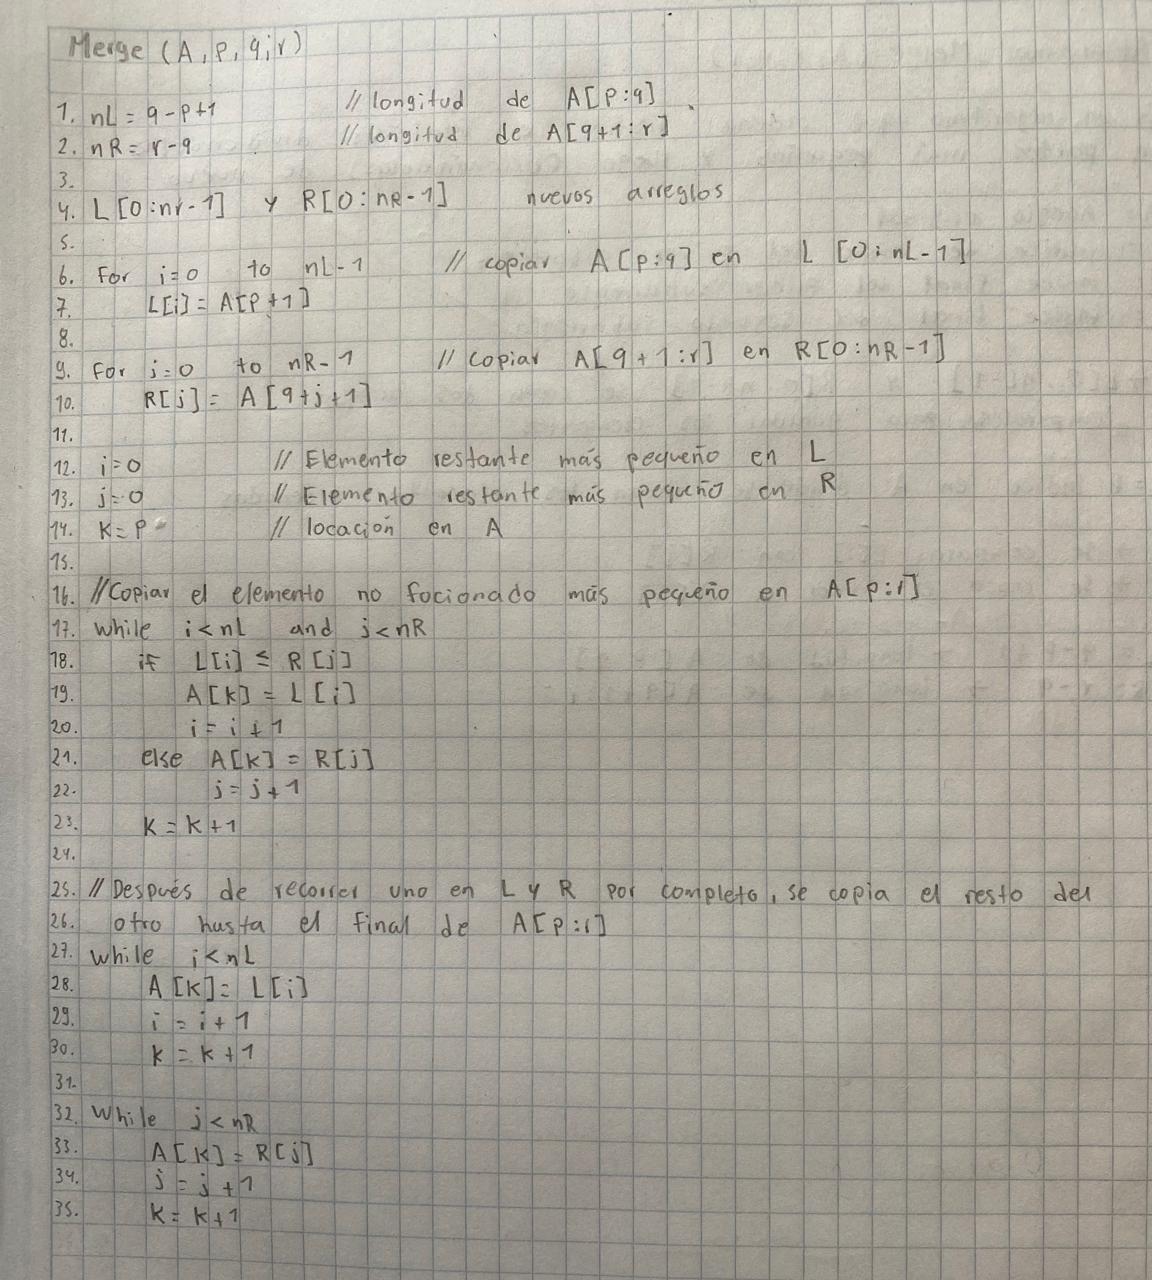 Merge (A, p, q, r)
1. nL = q - p + 1 // longitud de A[p:q]
2. nR = r - q // longitud de A[q+1:r]
3.
4. L[0:nr-1] y R[0:nR-1] nuevos arreglos
5.
6. For i=0 to nL-1 // copiar A[p:q] en L [0:nL-1]
7. L[i] = A[p+1]
8.
9. For j=0 to nR-1 // copiar A[q+1:r] en R[0:nR-1]
10. R[j] = A[q+j+1]
11.
12. i=0 // Elemento restante más pequeño en L
13. j=0 // Elemento restante más pequeño en R
14. K=p // locación en A
15.
16. //Copiar el elemento no focionado más pequeño en A[p:r]
17. while i<nL and j<nR
18. if L[i] ≤ R[j]
19. A[k] = L[i]
20. i = i + 1
21. else A[k] = R[j]
22. j = j + 1
23. K = k + 1
24.
25. // Después de recorrer uno en L y R por completo, se copia el resto del
26. otro hasta el final de A[p:r]
27. while i<nL
28. A[K] = L[i]
29. i = i + 1
30. k = k + 1
31.
32. While j<nR
33. A[K] = R[j]
34. j = j + 1
35. k = k + 1